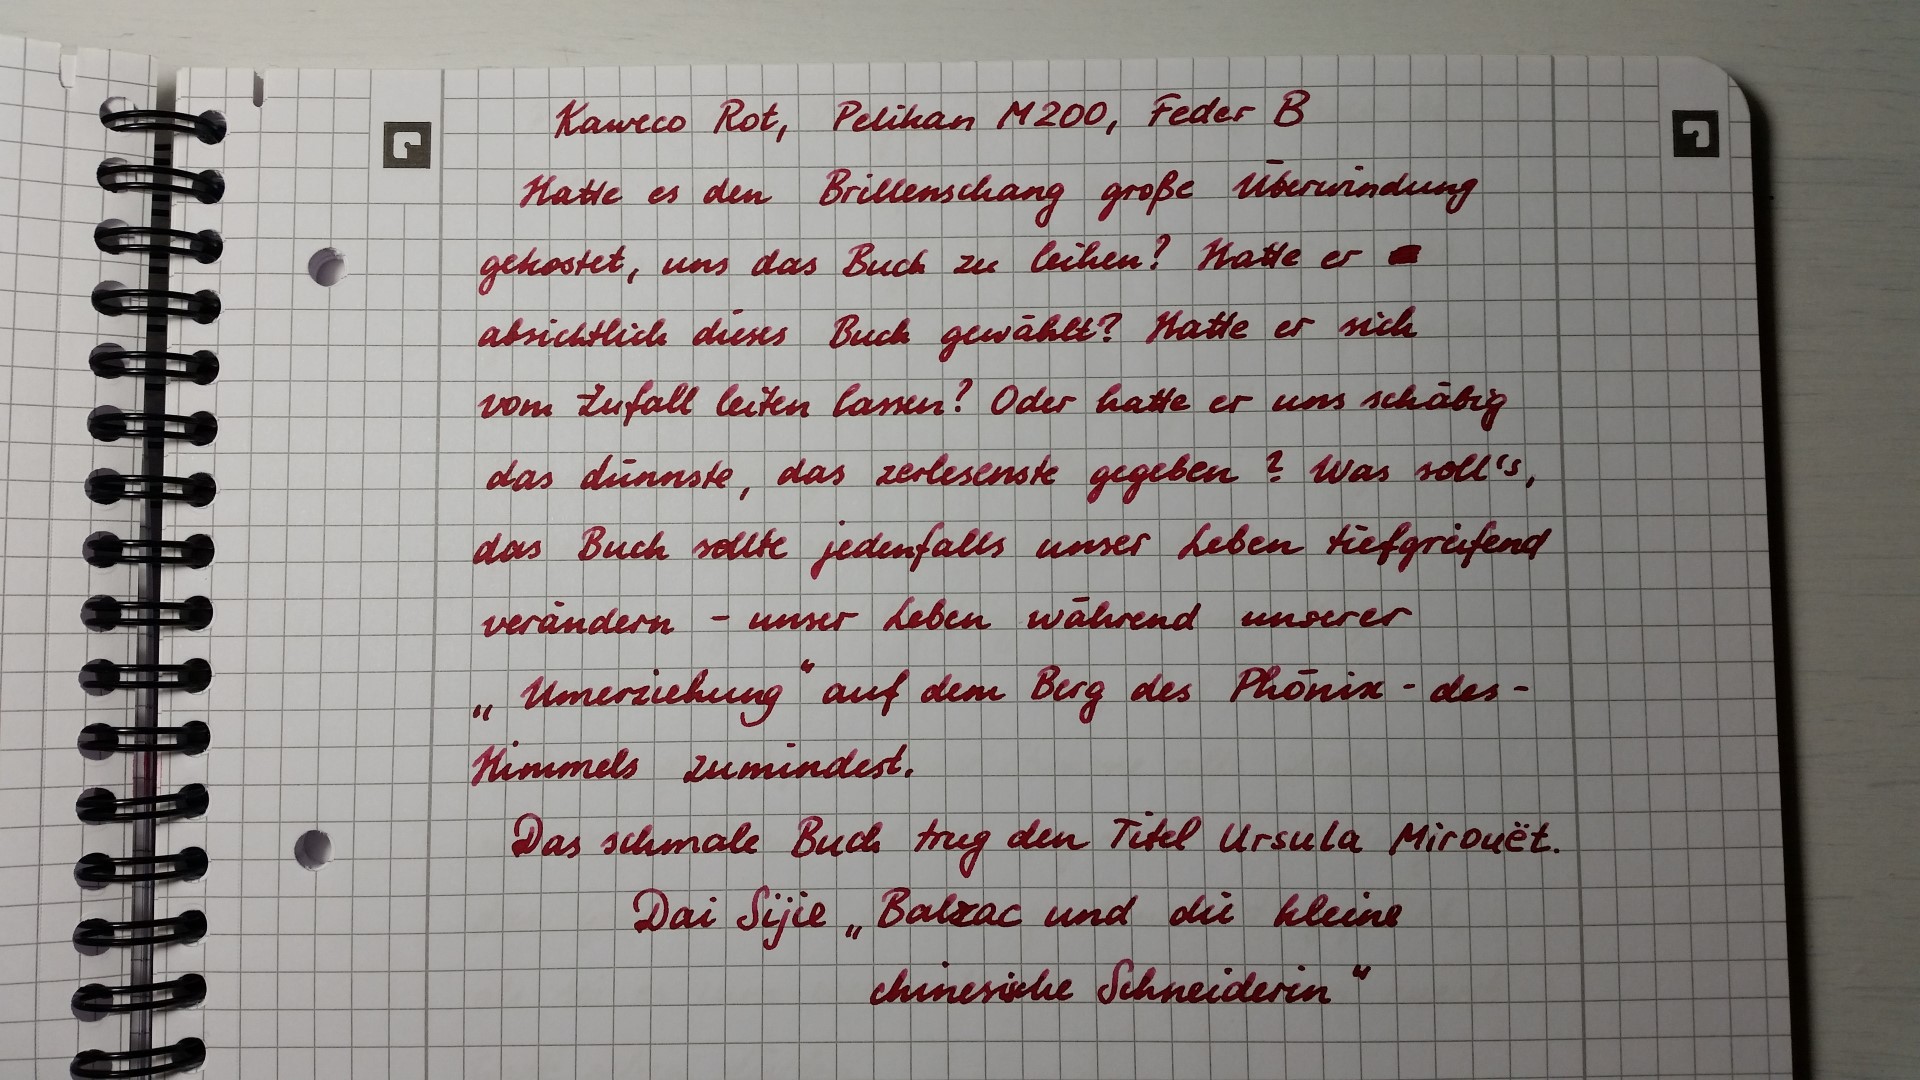 Kaweco Rot, Pelikan M200, Feder B
Hatte es den Brillenschang große Überwindung
gekostet, uns das Buch zu leihen? Hatte er
absichtlich dieses Buch gewählt? Hatte er sich
vom Zufall leiten lassen? Oder hatte er uns schäbig
das dünnste, das zerlesenste gegeben? Was soll's,
das Buch sollte jedenfalls unser Leben tiefgreifend
verändern - unser Leben während unserer
„Umerziehung“ auf dem Berg des Phönix-des-
Himmels zumindest.
Das schmale Buch trug den Titel Ursula Mirouët.
Dai Sijie „Balzac und die kleine
chinesische Schneiderin“